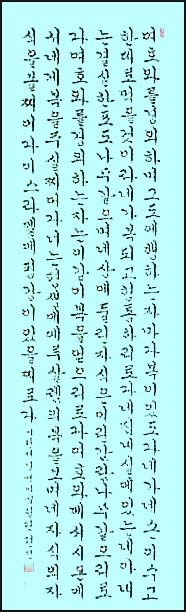 여호와를 경외하며 그 도에 행하는 자마다 복이 있도다 네가 네 손이 수고
한대로 먹을 것이라 네가 복되고 형통하리로다 네 집 내실에 있는 네 아내
는 결실한 포도나무 같으며 네 상에 둘린 자식은 어린 감람나무 같으리로
다 여호와를 경외하는 자는 이같이 복을 얻으리로다 여호와께서 시온에
서 네게 복을 주실찌어다 너는 평생에 예루살렘의 복을 보며 네 자식의 자
식을 볼찌어다 이스라엘에게 평강이 있을찌로다